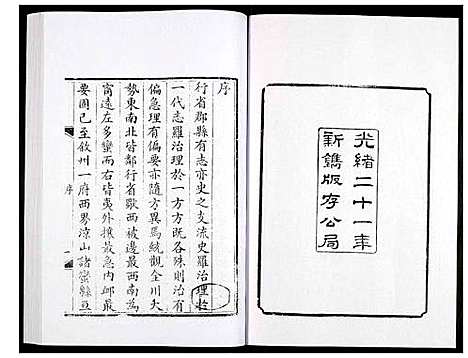 光緒二十一年
新鐫版存公局
序
行省郡縣有志亦史之支流史羅治理於
一代志羅治理於一方方既各殊則治有
偏急理有偏要亦隨方異焉統觀全川大
勢東南北皆鄰行省歐西被邊最西南為
甯遠左多蠻而右皆夷外撩最急內邮最
要圖已至敘州一府西界涼山諸蠻縣亘
序